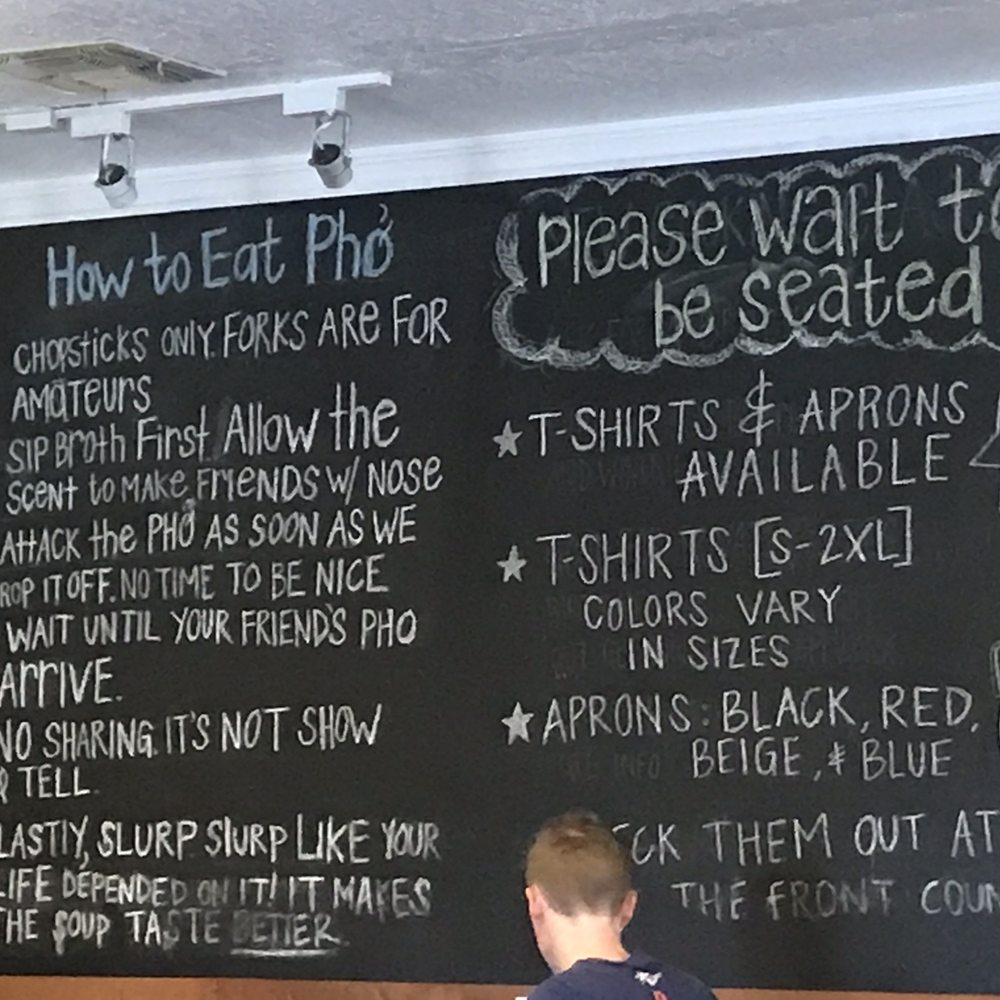 How to Eat Phở
CHOPSTICKS ONLY. FORKS ARE FOR
AMATEURS
SIP BROTH FIRST. Allow the
SCENT to MAKE FRIENDS W/ NOSE
ATTACK the PHỞ AS SOON AS WE
ROP IT OFF. NO TIME TO BE NICE
WAIT UNTIL YOUR FRIEND'S PHO
ARRIVE.
NO SHARING. IT'S NOT SHOW
& TELL.
LASTLY, SLURP SLURP LIKE YOUR
LIFE DEPENDED ON IT! IT MAKES
THE SOUP TASTE BETTER
Please wait to
be seated
★ T-SHIRTS & APRONS
AVAILABLE
★ T-SHIRTS [S-2XL]
COLORS VARY
IN SIZES
★ APRONS: BLACK, RED,
BEIGE, & BLUE
CK THEM OUT AT
THE FRONT COUN